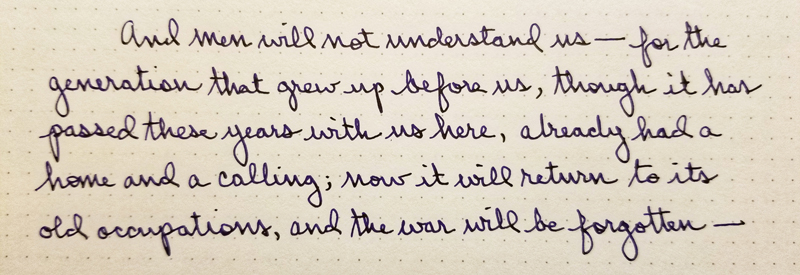 And men will not understand us — for the
generation that grew up before us, though it has
passed these years with us here, already had a
home and a calling; now it will return to its
old occupations, and the war will be forgotten —